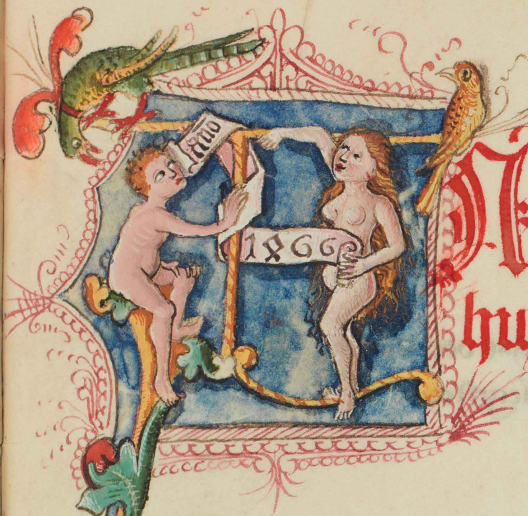 Anno
1466
hu